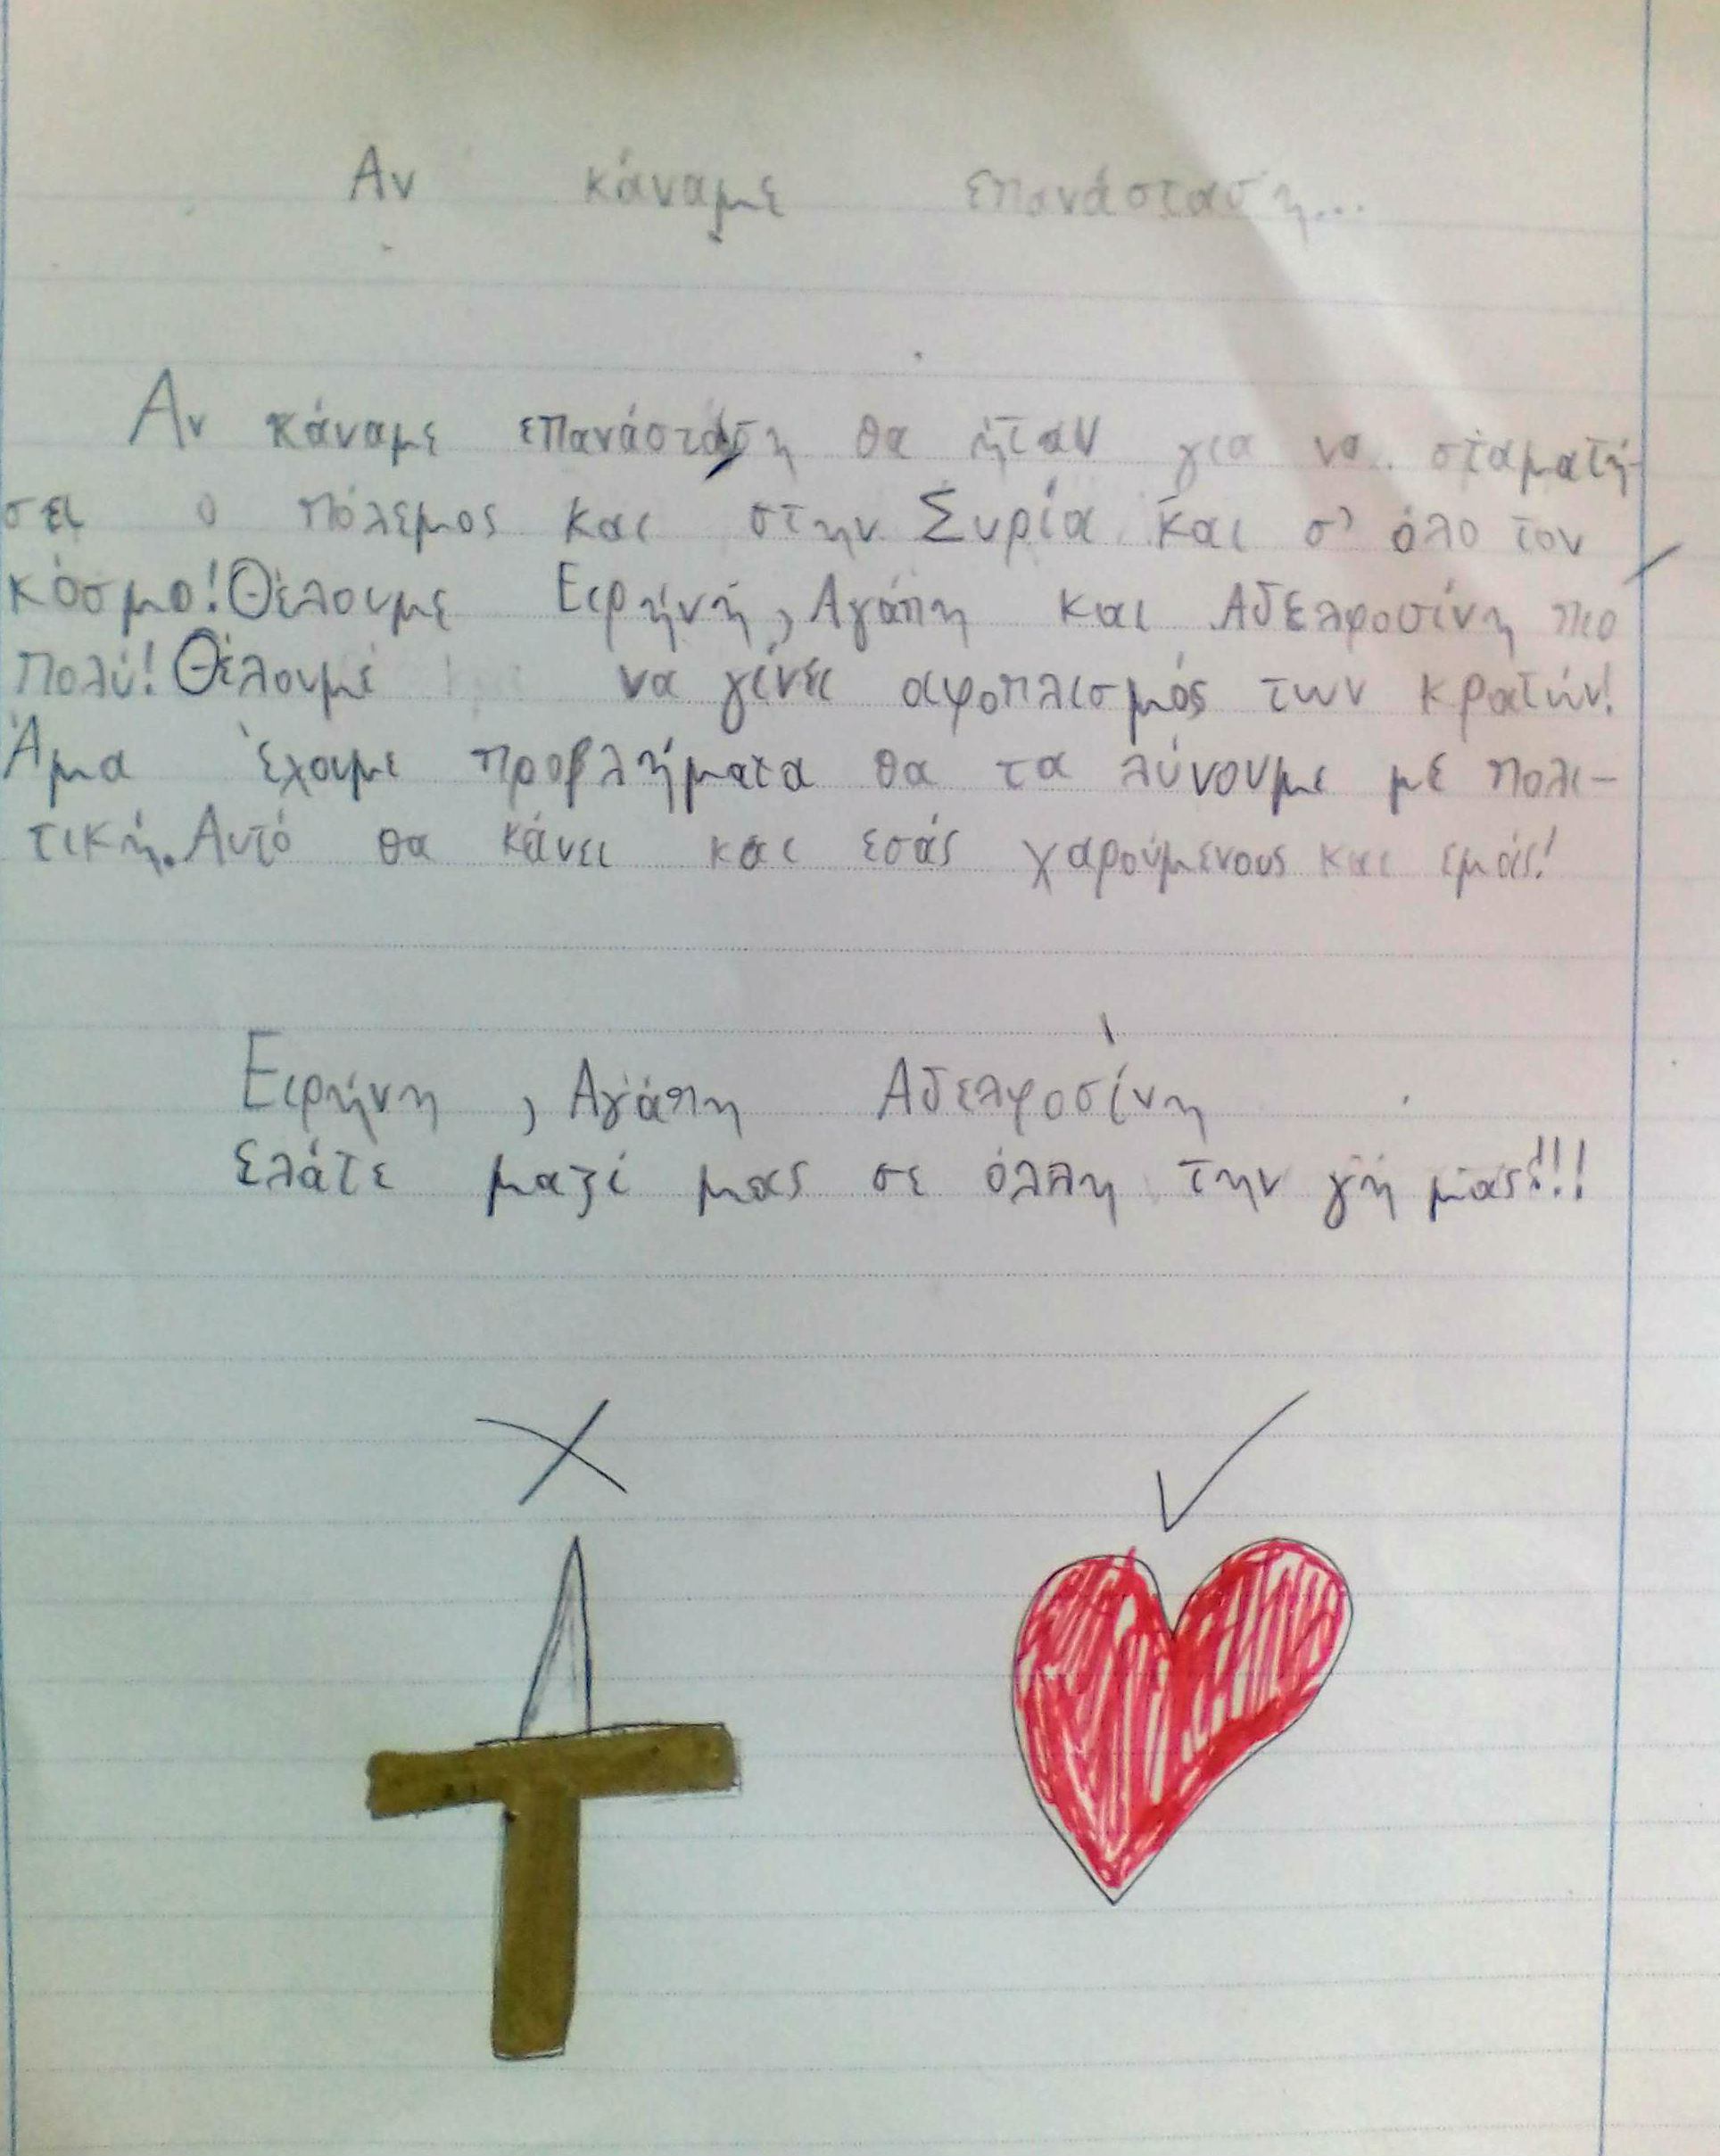 Αν κάναμε επανάσταση...
Αν κάναμε επανάσταση θα ήταν για να σταματή-
σει ο πόλεμος και στην Συρία και σ' όλο τον
κόσμο! Θέλουμε Ειρήνή, Αγάπη και Αδελφοσίνη πιο
πολύ! Θέλουμε να γίνει αφοπλισμός των κρατών!
Άμα έχουμε προβλήματα θα τα λύνουμε με πολι-
τική. Αυτό θα κάνει και εσάς χαρούμενους και εμάς!
Ειρήνη, Αγάπη Αδελφοσίνη
ελάτε μαζί μας σε όλλη την γή μας!!!